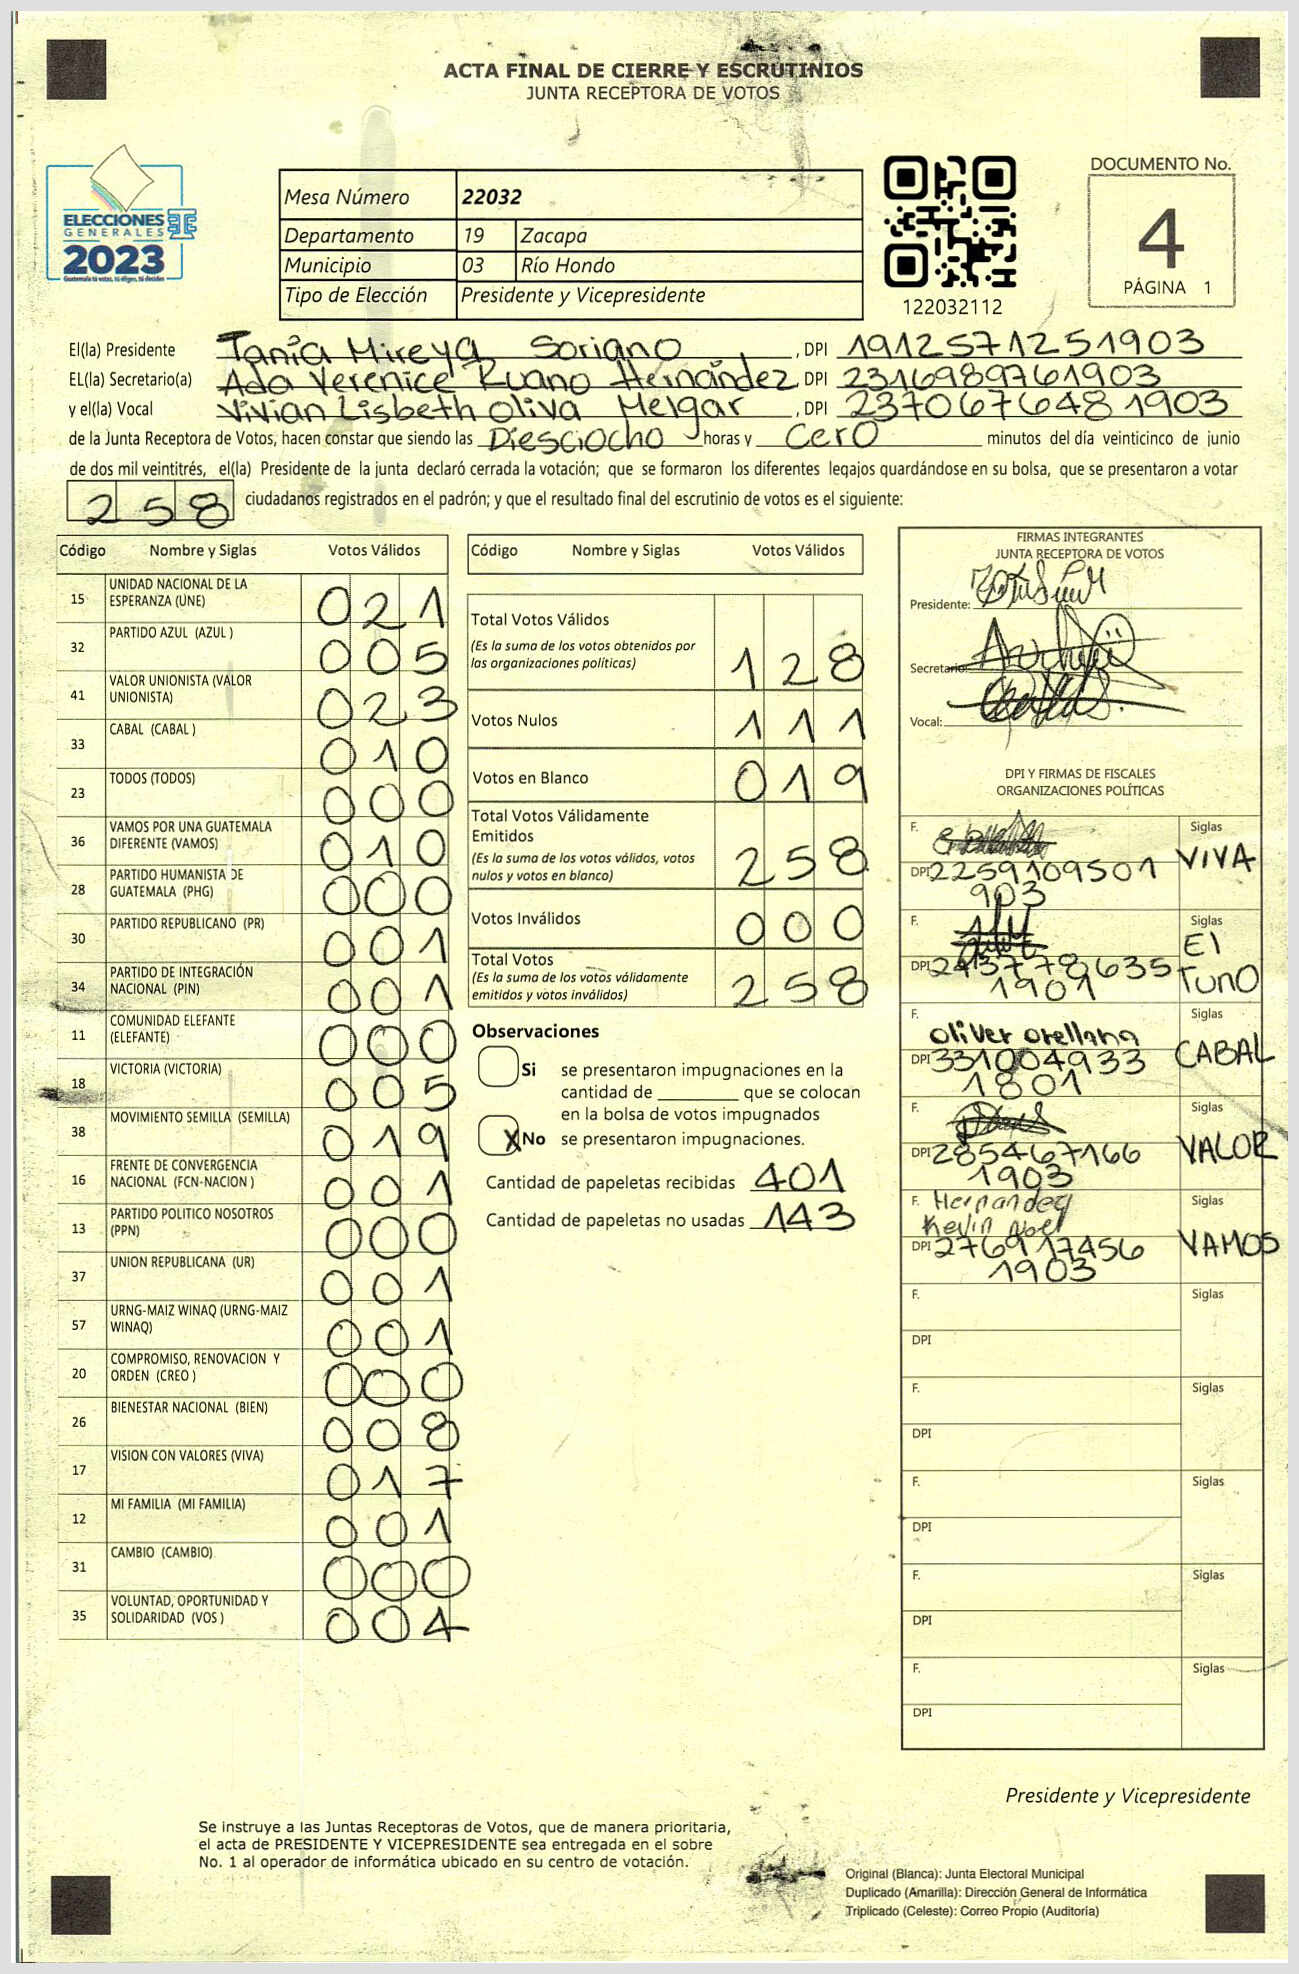 ACTA FINAL DE CIERRE Y ESCRUTINIOS
JUNTA RECEPTORA DE VOTOS
ELECCIONES
GENERALES
2023
Guatemala tú votas, tú eliges, tú decides
Mesa Número 22032
Departamento 19 Zacapa
Municipio 03 Río Hondo
Tipo de Elección Presidente y Vicepresidente
122032112
DOCUMENTO No.
4
PÁGINA 1
El(la) Presidente Tania Mireya Soriano , DPI 1912571251903
EL(la) Secretario(a) Ada Verenice Ruano Hernández DPI 2316989761903
y el(la) Vocal Vivian Lisbeth Oliva Melgar , DPI 2370676481903
de la Junta Receptora de Votos, hacen constar que siendo las Diesciocho horas y Cero minutos del día veinticinco de junio
de dos mil veintitrés, el(la) Presidente de la junta declaró cerrada la votación; que se formaron los diferentes legajos quardándose en su bolsa, que se presentaron a votar
258 ciudadanos registrados en el padrón; y que el resultado final del escrutinio de votos es el siguiente:
Código Nombre y Siglas Votos Válidos
15 UNIDAD NACIONAL DE LA ESPERANZA (UNE) 021
32 PARTIDO AZUL (AZUL ) 005
41 VALOR UNIONISTA (VALOR UNIONISTA) 023
33 CABAL (CABAL ) 010
23 TODOS (TODOS) 000
36 VAMOS POR UNA GUATEMALA DIFERENTE (VAMOS) 010
28 PARTIDO HUMANISTA DE GUATEMALA (PHG) 000
30 PARTIDO REPUBLICANO (PR) 001
34 PARTIDO DE INTEGRACIÓN NACIONAL (PIN) 001
11 COMUNIDAD ELEFANTE (ELEFANTE) 000
18 VICTORIA (VICTORIA) 005
38 MOVIMIENTO SEMILLA (SEMILLA) 019
16 FRENTE DE CONVERGENCIA NACIONAL (FCN-NACION ) 001
13 PARTIDO POLITICO NOSOTROS (PPN) 000
37 UNION REPUBLICANA (UR) 001
57 URNG-MAIZ WINAQ (URNG-MAIZ WINAQ) 001
20 COMPROMISO, RENOVACION Y ORDEN (CREO ) 000
26 BIENESTAR NACIONAL (BIEN) 008
17 VISION CON VALORES (VIVA) 017
12 MI FAMILIA (MI FAMILIA) 001
31 CAMBIO (CAMBIO) 000
35 VOLUNTAD, OPORTUNIDAD Y SOLIDARIDAD (VOS ) 004
Código Nombre y Siglas Votos Válidos
Total Votos Válidos
(Es la suma de los votos obtenidos por
las organizaciones políticas) 128
Votos Nulos 111
Votos en Blanco 019
Total Votos Válidamente
Emitidos
(Es la suma de los votos válidos, votos
nulos y votos en blanco) 258
Votos Inválidos 000
Total Votos
(Es la suma de los votos válidamente
emitidos y votos inválidos) 258
Observaciones
Si se presentaron impugnaciones en la
cantidad de ________ que se colocan
en la bolsa de votos impugnados
X No se presentaron impugnaciones.
Cantidad de papeletas recibidas 401
Cantidad de papeletas no usadas 143
FIRMAS INTEGRANTES
JUNTA RECEPTORA DE VOTOS
Presidente:
Secretario:
Vocal:
DPI Y FIRMAS DE FISCALES
ORGANIZACIONES POLÍTICAS
F. Siglas VIVA
DPI 2259109501
903
F. Siglas El Tuno
DPI 2437786351901
F. Oliver Orellana Siglas CABAL
DPI 331004933
1801
F. Siglas VALOR
DPI 285467166
1903
F. Hernandez Siglas VAMOS
Kevin Noel
DPI 276917456
1903
F. Siglas
DPI
F. Siglas
DPI
F. Siglas
DPI
F. Siglas
DPI
F. Siglas
DPI
Presidente y Vicepresidente
Se instruye a las Juntas Receptoras de Votos, que de manera prioritaria,
el acta de PRESIDENTE Y VICEPRESIDENTE sea entregada en el sobre
No. 1 al operador de informática ubicado en su centro de votación.
Original (Blanca): Junta Electoral Municipal
Duplicado (Amarilla): Dirección General de Informática
Triplicado (Celeste): Correo Propio (Auditoría)